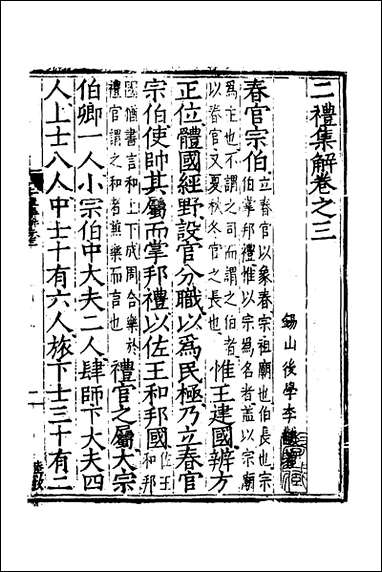 二禮集解卷之三
錫山後學李
春官宗伯
立春官以象春宗祖廟也伯長也宗
伯掌邦禮惟以宗為名者蓋以宗廟
為主也不謂之司而謂之伯者
以春官又夏秋冬官之長也
惟王建國辨方
正位體國經野設官分職以爲民極乃立春官
宗伯使帥其屬而掌邦禮以佐王和邦國
佐王
和邦
國猶書言和上下成周合樂於
禮官謂之和者兼樂而言也
禮官之屬大宗
伯卿一人小宗伯中大夫二人肆師下大夫四
人上士八人中士十有六人旅下士三十有二